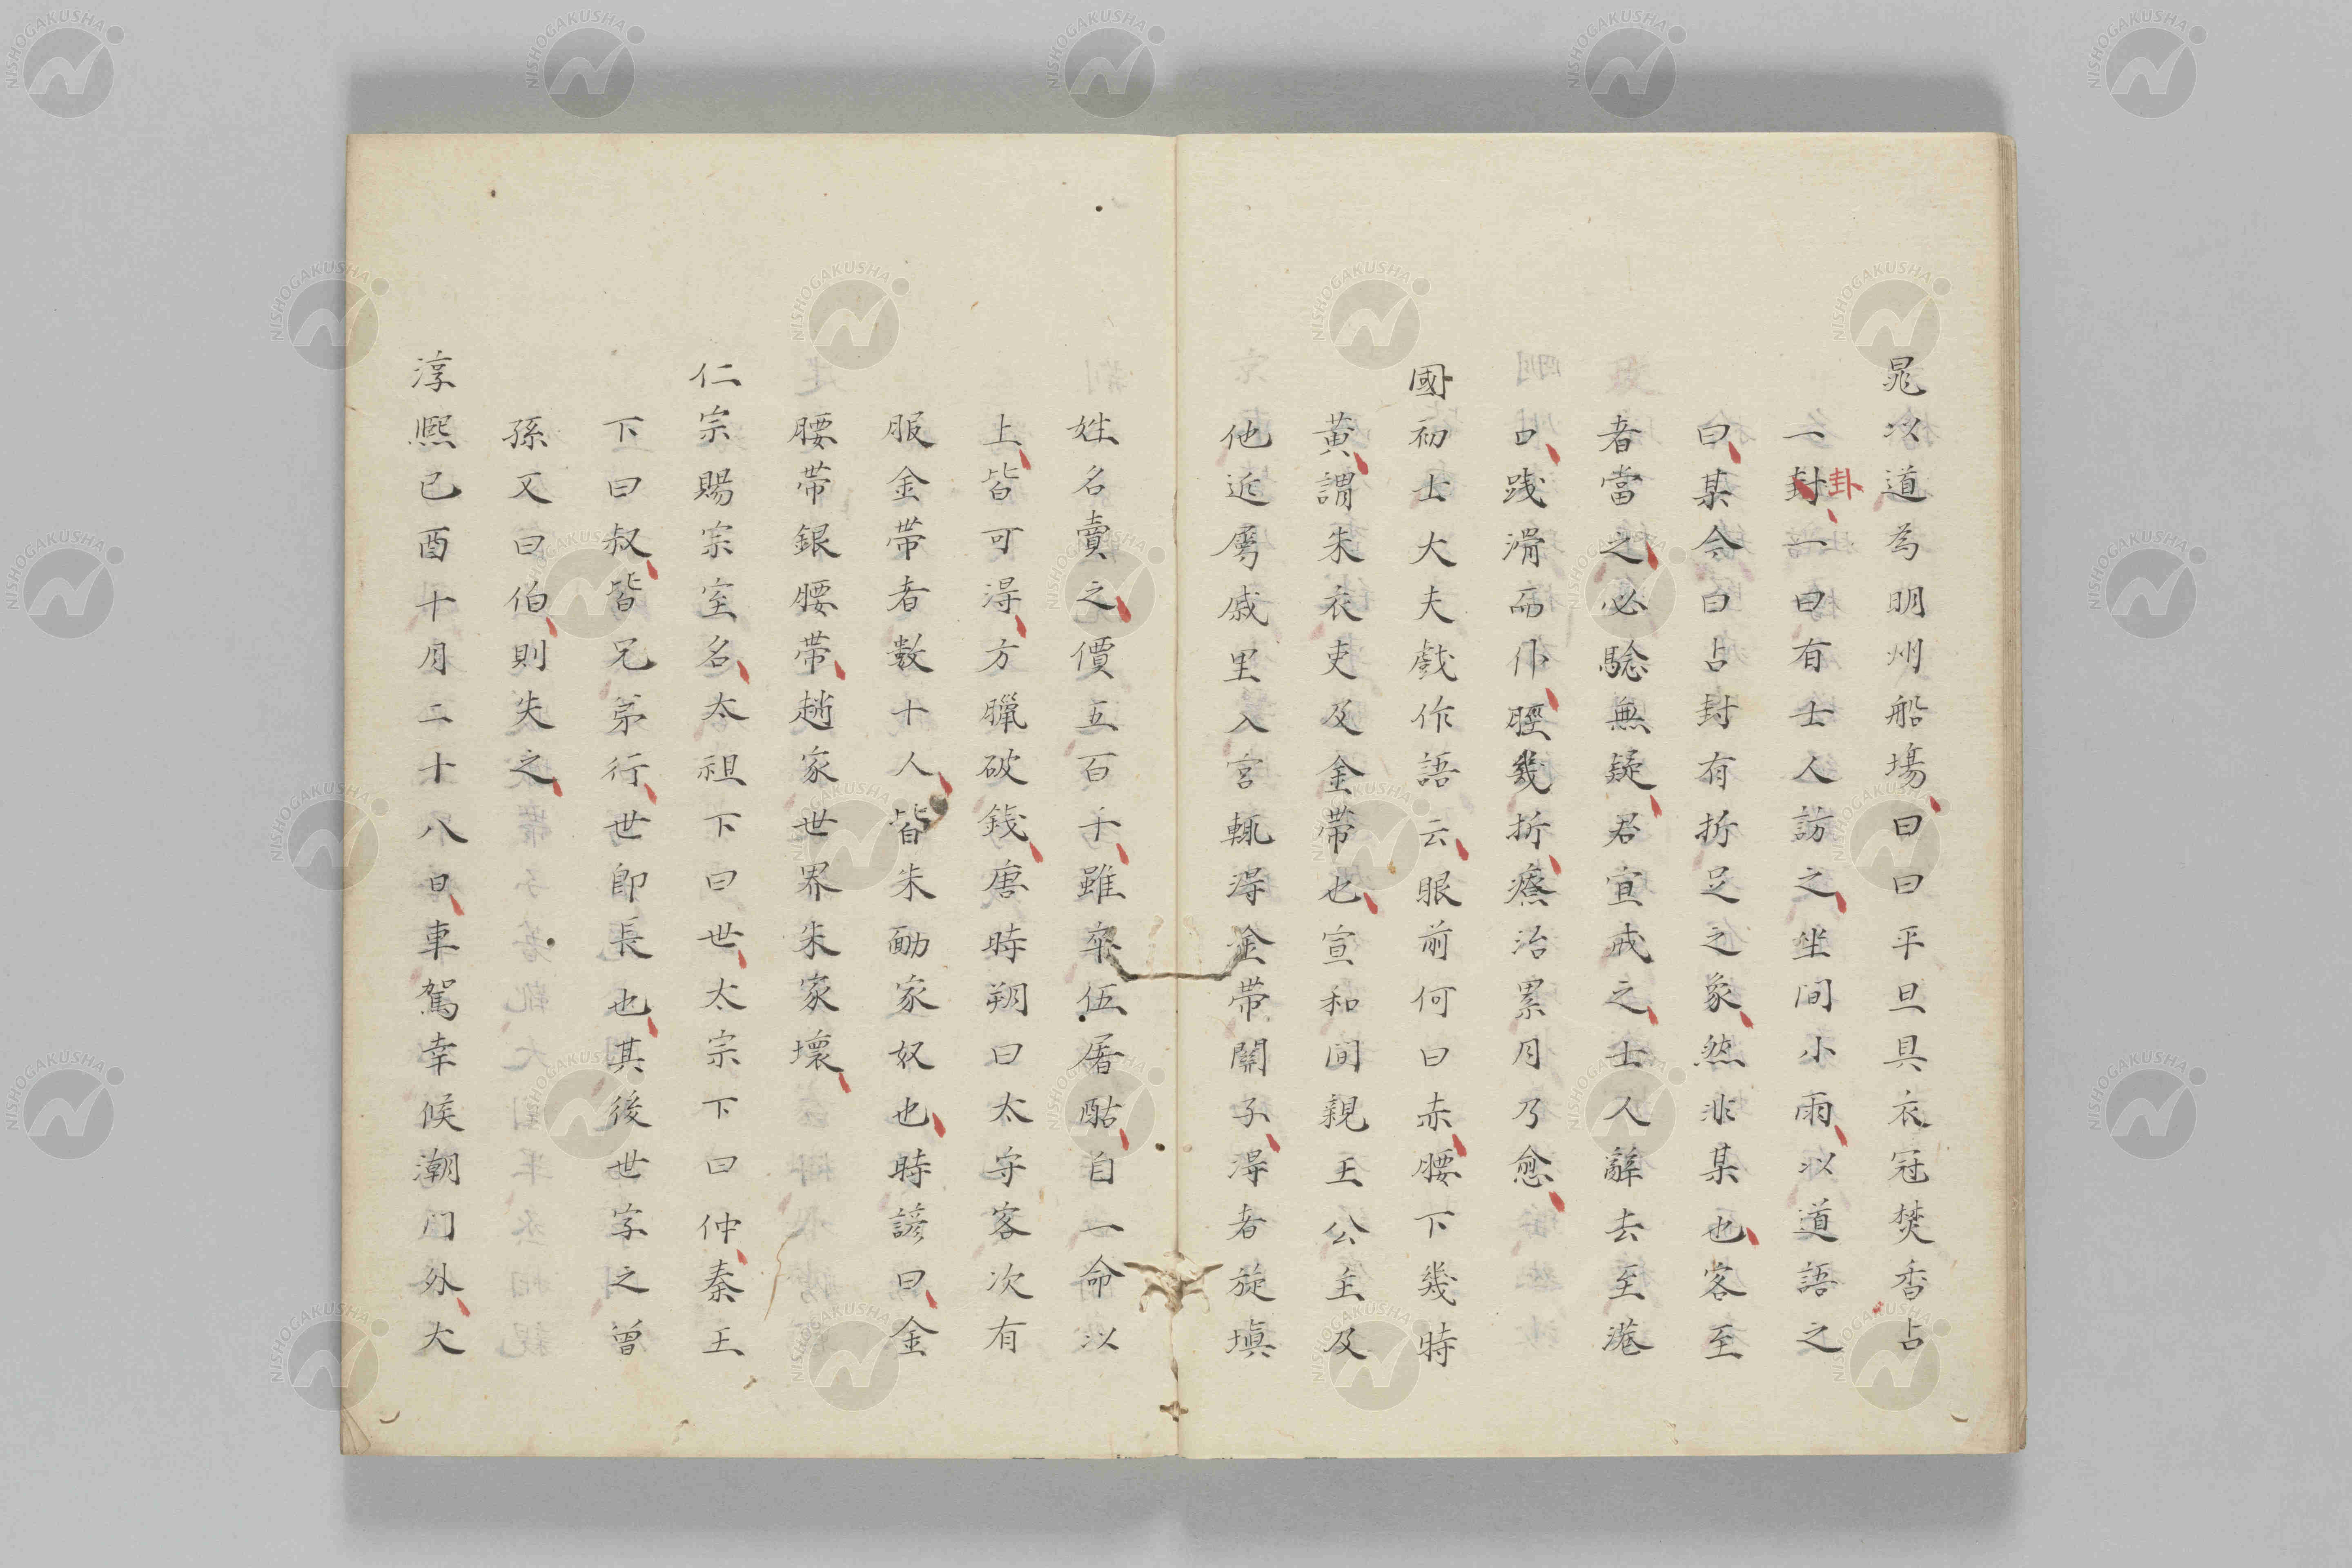 晁以道為明州船場曰曰平旦具衣冠焚香占
一封一曰有士人訪之坐間小雨以道語之
卦
曰某今曰占封有折足之象然非某也客至
者當之必驗無疑君宜戒之士人辭去至港
口践滑而仆脛幾折療治累月乃愈
國初士大夫戲作語云眼前何曰赤腰下幾時
黄謂朱衣吏及金帶也宣和間親王公主及
他近属戚里入宮輒得金帶關子得者旋塡
姓名賣之價五百千雖卒伍屠酤自一命以
上皆可得方臘破錢唐時朔曰太守客次有
服金帶者數十人皆朱勔家奴也時諺曰金
腰帶銀腰帶趙家世界朱家壞
仁宗賜宗室名太祖下曰世太宗下曰仲秦王
下曰叔皆兄弟行世即長也其後世字之曾
孫又曰伯則失之
淳熙己酉十月二十八日車駕幸候潮门外大
NISHOGAKUSHA